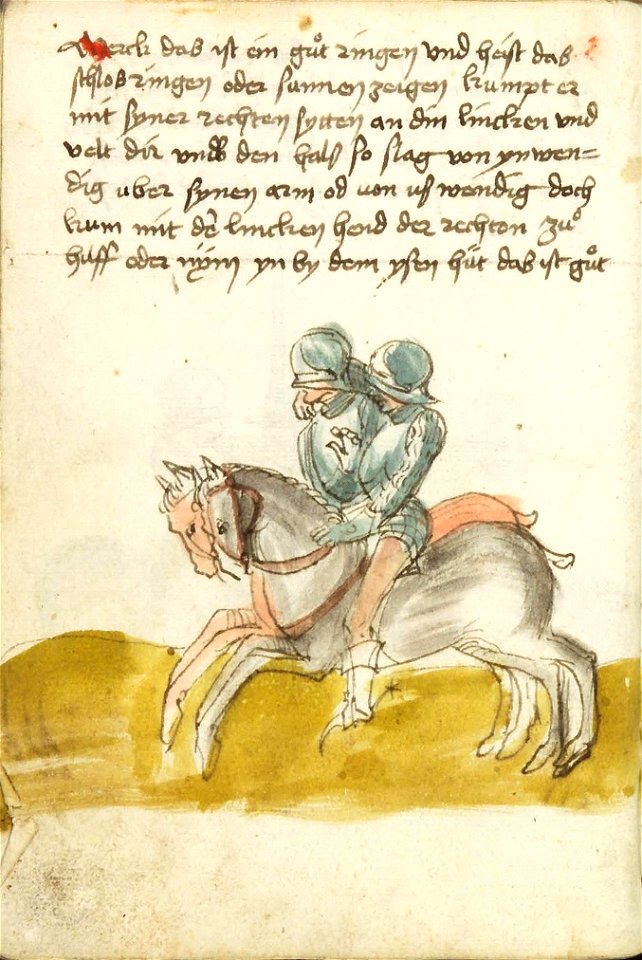 Merck das ist ein guͦt ringen vnd heist das
schlos ringen oder sunnen zeigen kumpt er
mit syner rechten sytten an din lincken vnd
velt dir vmb den hals so slag von ynwen=
dig uber synen arm od von vswendig doch
kum mit de lincken hend der rechton zuͦ
huff oder nym yn by dem ysen huͤt das ist guͦt